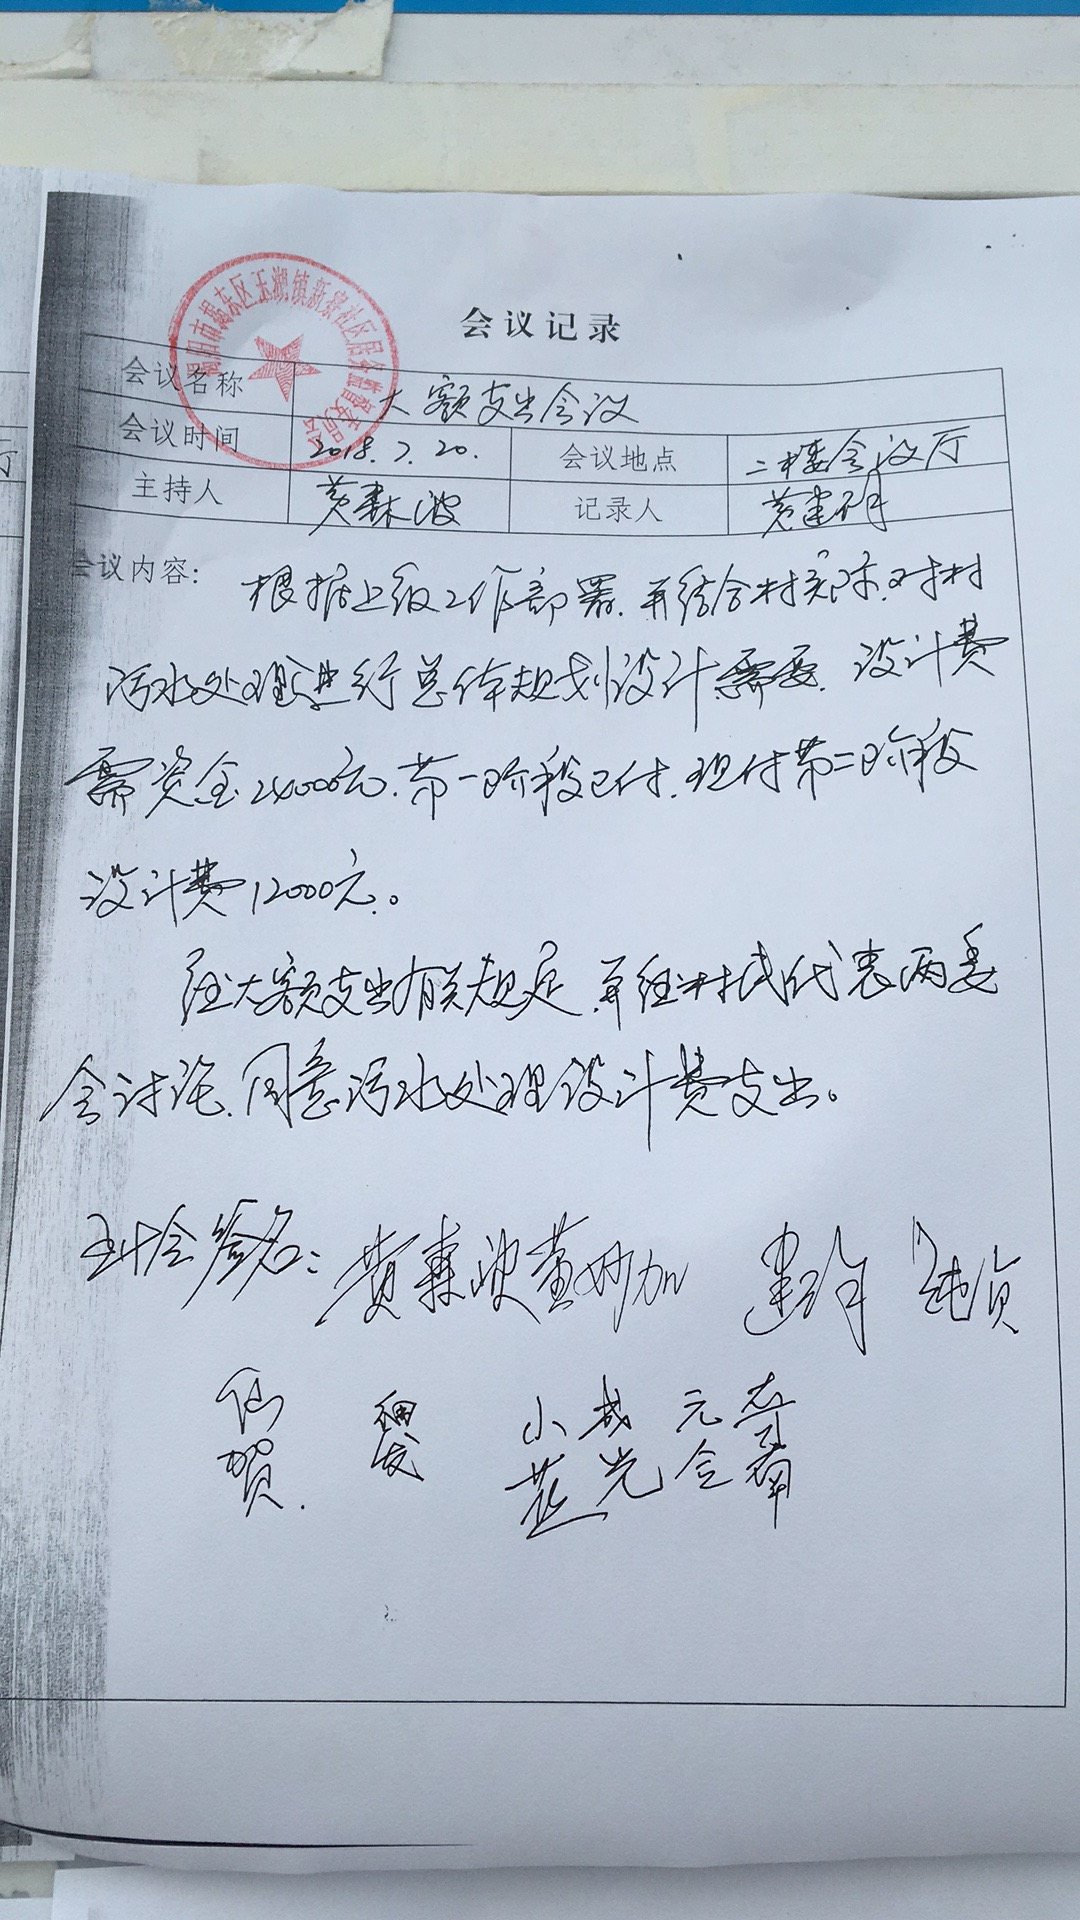 会议记录
揭阳市揭东区玉湖镇新寮社区居务监督委员会
会议名称 大额支出会议
会议时间 2018.7.20. 会议地点 二楼会议厅
主持人 黄森波 记录人 黄建明
会议内容：根据上级工作部署，并结合村实际，对村
污水处理进行总体规划设计需要，设计费
需资金24000元，第一阶段已付，现付第二阶段
设计费12000元。
经大额支出有关规定，并经村民代表两委
会讨论，同意污水处理设计费支出。
到会签名：黄森波 黄妙加
仙 小 成 元
贺 光